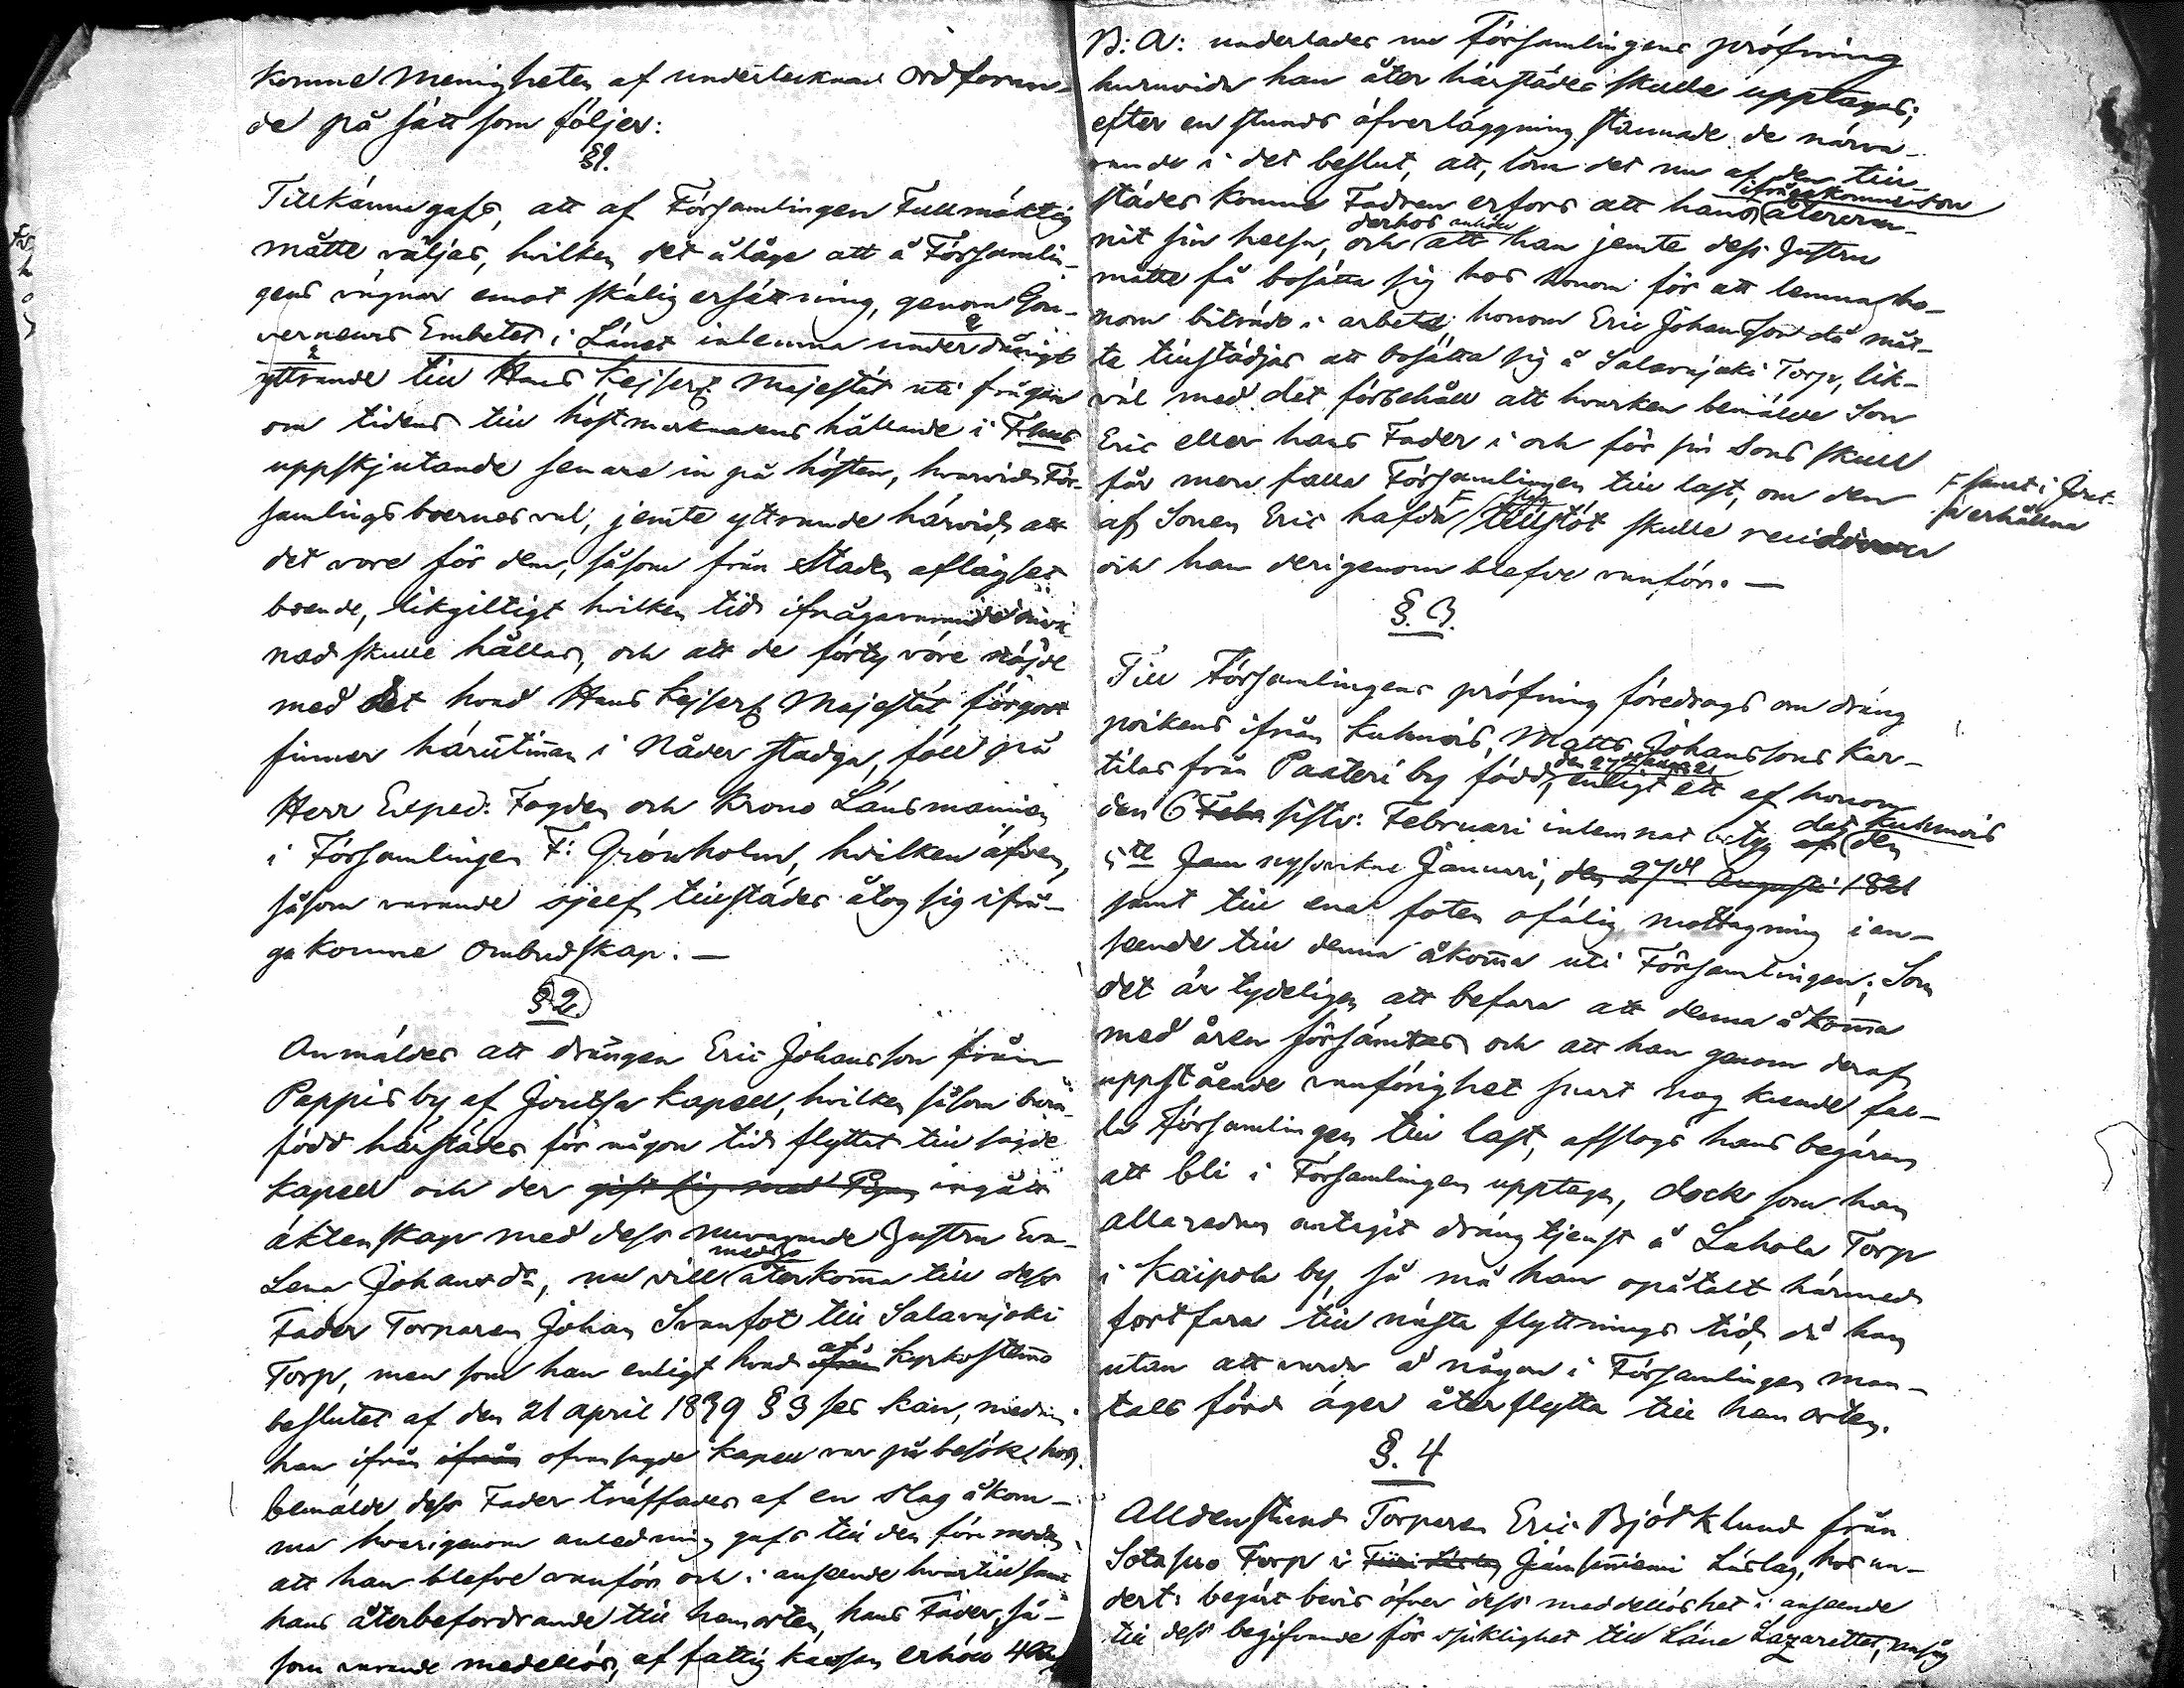 komne Menigheten af undertecknad Ordföran-
de på sätt som följer:
§ 1.
Tillkännagafs, att af Församlingen Fullmäktig
måtte väljas, hvilken det ålåge att å Församlin-
gens vägnar emot skälig ersättning, genom Gou-
verneurs Embetet i Länet inlemna underdånigt
yttrande till Hans Kejserl: Majestät uti frågan
om tidens till höstmarknadens hållande i T:hus
uppskjutande senare in på hösten, hvarvid För-
samlingsboernes val, jemte yttrande härvid, att
det vore för dem, såsom från Staden aflägset
boende, likgiltigt hvilken tid ifrågavarande mark-
nad skulle hållas, och att de förty vore nöjde
med det hvad Hans Kejserl: Majestät förgodt
finner härutinnan i Nåder stadga, föll på
Herr Exped: Fogden och Krono Länsmannen
i Församlingen F: Grönholm, hvilken äfven,
såsom varande sjelf tillstädes åtog sig ifrå-
ga komne Ombudskap. —
§ 2.
Anmäldes att drängen Eric Johansson från
Pappis by af Joutsa Kapell, hvilken såsom barn-
född härstädes för någon tid flyttat till sagde
Kapell och der gift sig med Pigan ingått
äktenskap med dess nuvarande Hustru Eva-
Lena Johansdr, nu vill med återkomma till dess
Fader Torparen Johan Svanfot till Salavajoki
Torp, men som han enligt hvad af ifrån Kyrkostemmo
beslutet af den 21 April 1839 § 3 ses kan, medan
han ifrån ifrån ofvansagde Kapell var på besök hos
bemälde dess Fader träffades af en slag åkom-
ma hvarigenom anledning gafs till den förmodan
att han blefve vanför och i anseende hvartill samt
hans återbefordrande till hemorten, hans Fader, så-
som varande medellös, af fattig kassan erhöll 4
B: A: underlades nu Församlingens pröfning
huruvida han åter härstädes skulle upptagas;
efter en stunds öfverläggning stannade de närva-
rande i det beslut, att, som det nu af den till-
städes komne Fadren erfors att hans ifrågakomne son återvun-
nit sin helsa, och derhos anhöll att han jemte dess Hustru
måtte få bosätta sig hos honom för att lemna ho-
nom biträde i arbete: honom Eric Johansson då måt-
te tillstädjas att bosätta sig å Salavajoki Torp, lik-
väl med det förbehåll att hvarken bemälde Son
Eric eller hans Fader i och för sin Sons skull
får mera falla Församlingen till last, om den
af Sonen Eric hafda F tillstöt skulle recidivera
F samt i Jout-
sa erhållna
och han derigenom blefve vanför. —
§. 3.
Till Församlingens pröfning föredrogs om dräng
poikens ifrån Kuhmois, Matts Johanssons Kar-
tilas från Paateri by född, den 27 Aug 1821 enligt ett af honom
den 6 Febr sistl: Februari inlemnat betyg af det Kuhmois den
5te Jann nyssvikne Januari, den 27de Augusti 1821
samt till ena foten ofälig mottagning i an-
seende till denna åkomma uti Församlingen; Som
det är tydeligen att befara att denna åkomma
med åren försämras och att han genom deraf
uppstående vanförighet snart nog kunde fal-
la Församlingen till last, afslogs hans begäran
att bli i Församlingen upptagen, dock som han
allaredan antagit dräng tjenst å Lahola Torp
i Kaipola by, så må han opåtalt härmed
fortfara till nästa flyttnings tid, då han
utan att varda å någon i Församlingen man-
tals förd äger återflytta till hemorten.
§. 4
Alldenstund Torparen Eric Björklund från
Sotapuro Torp i Jämsänniemi Läslag, hos un-
dert: begärt bevis öfver dess medellöshet i anseende
till dess begifvande för sjuklighet till Läne Lazarettet,